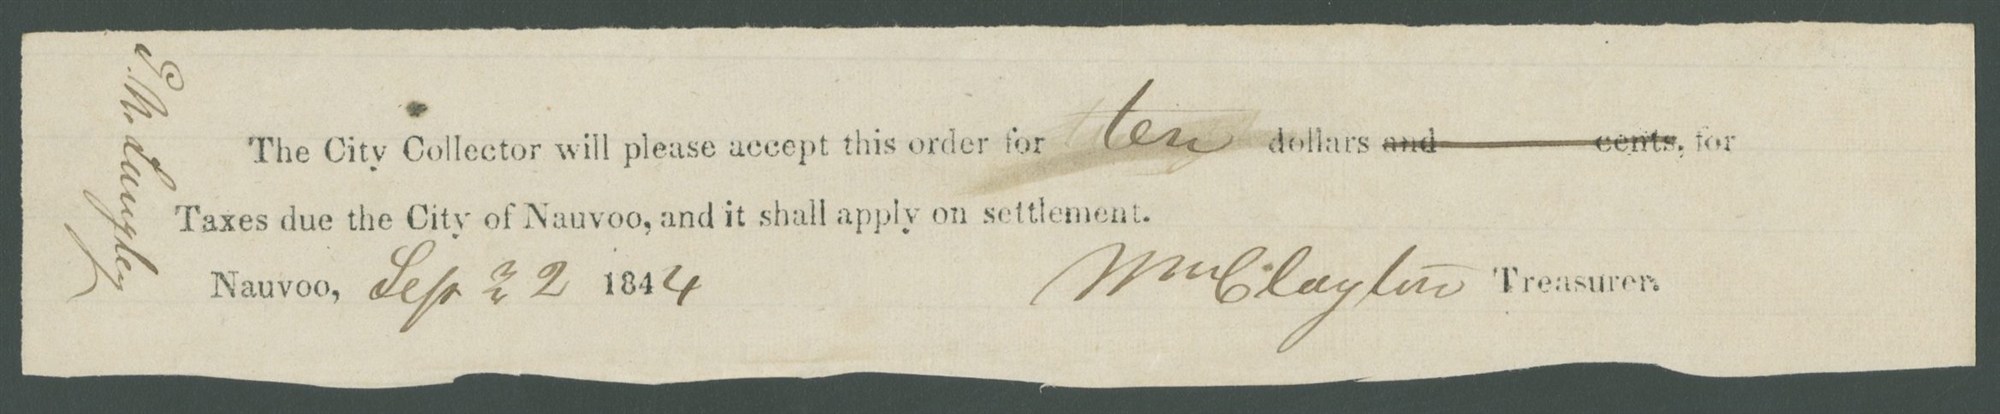 The City Collector will please accept this order for ten dollars and cents, for
Taxes due the City of Nauvoo, and it shall apply on settlement.
Nauvoo, Sep 1844 Wm Clayton Treasurer.
Langley